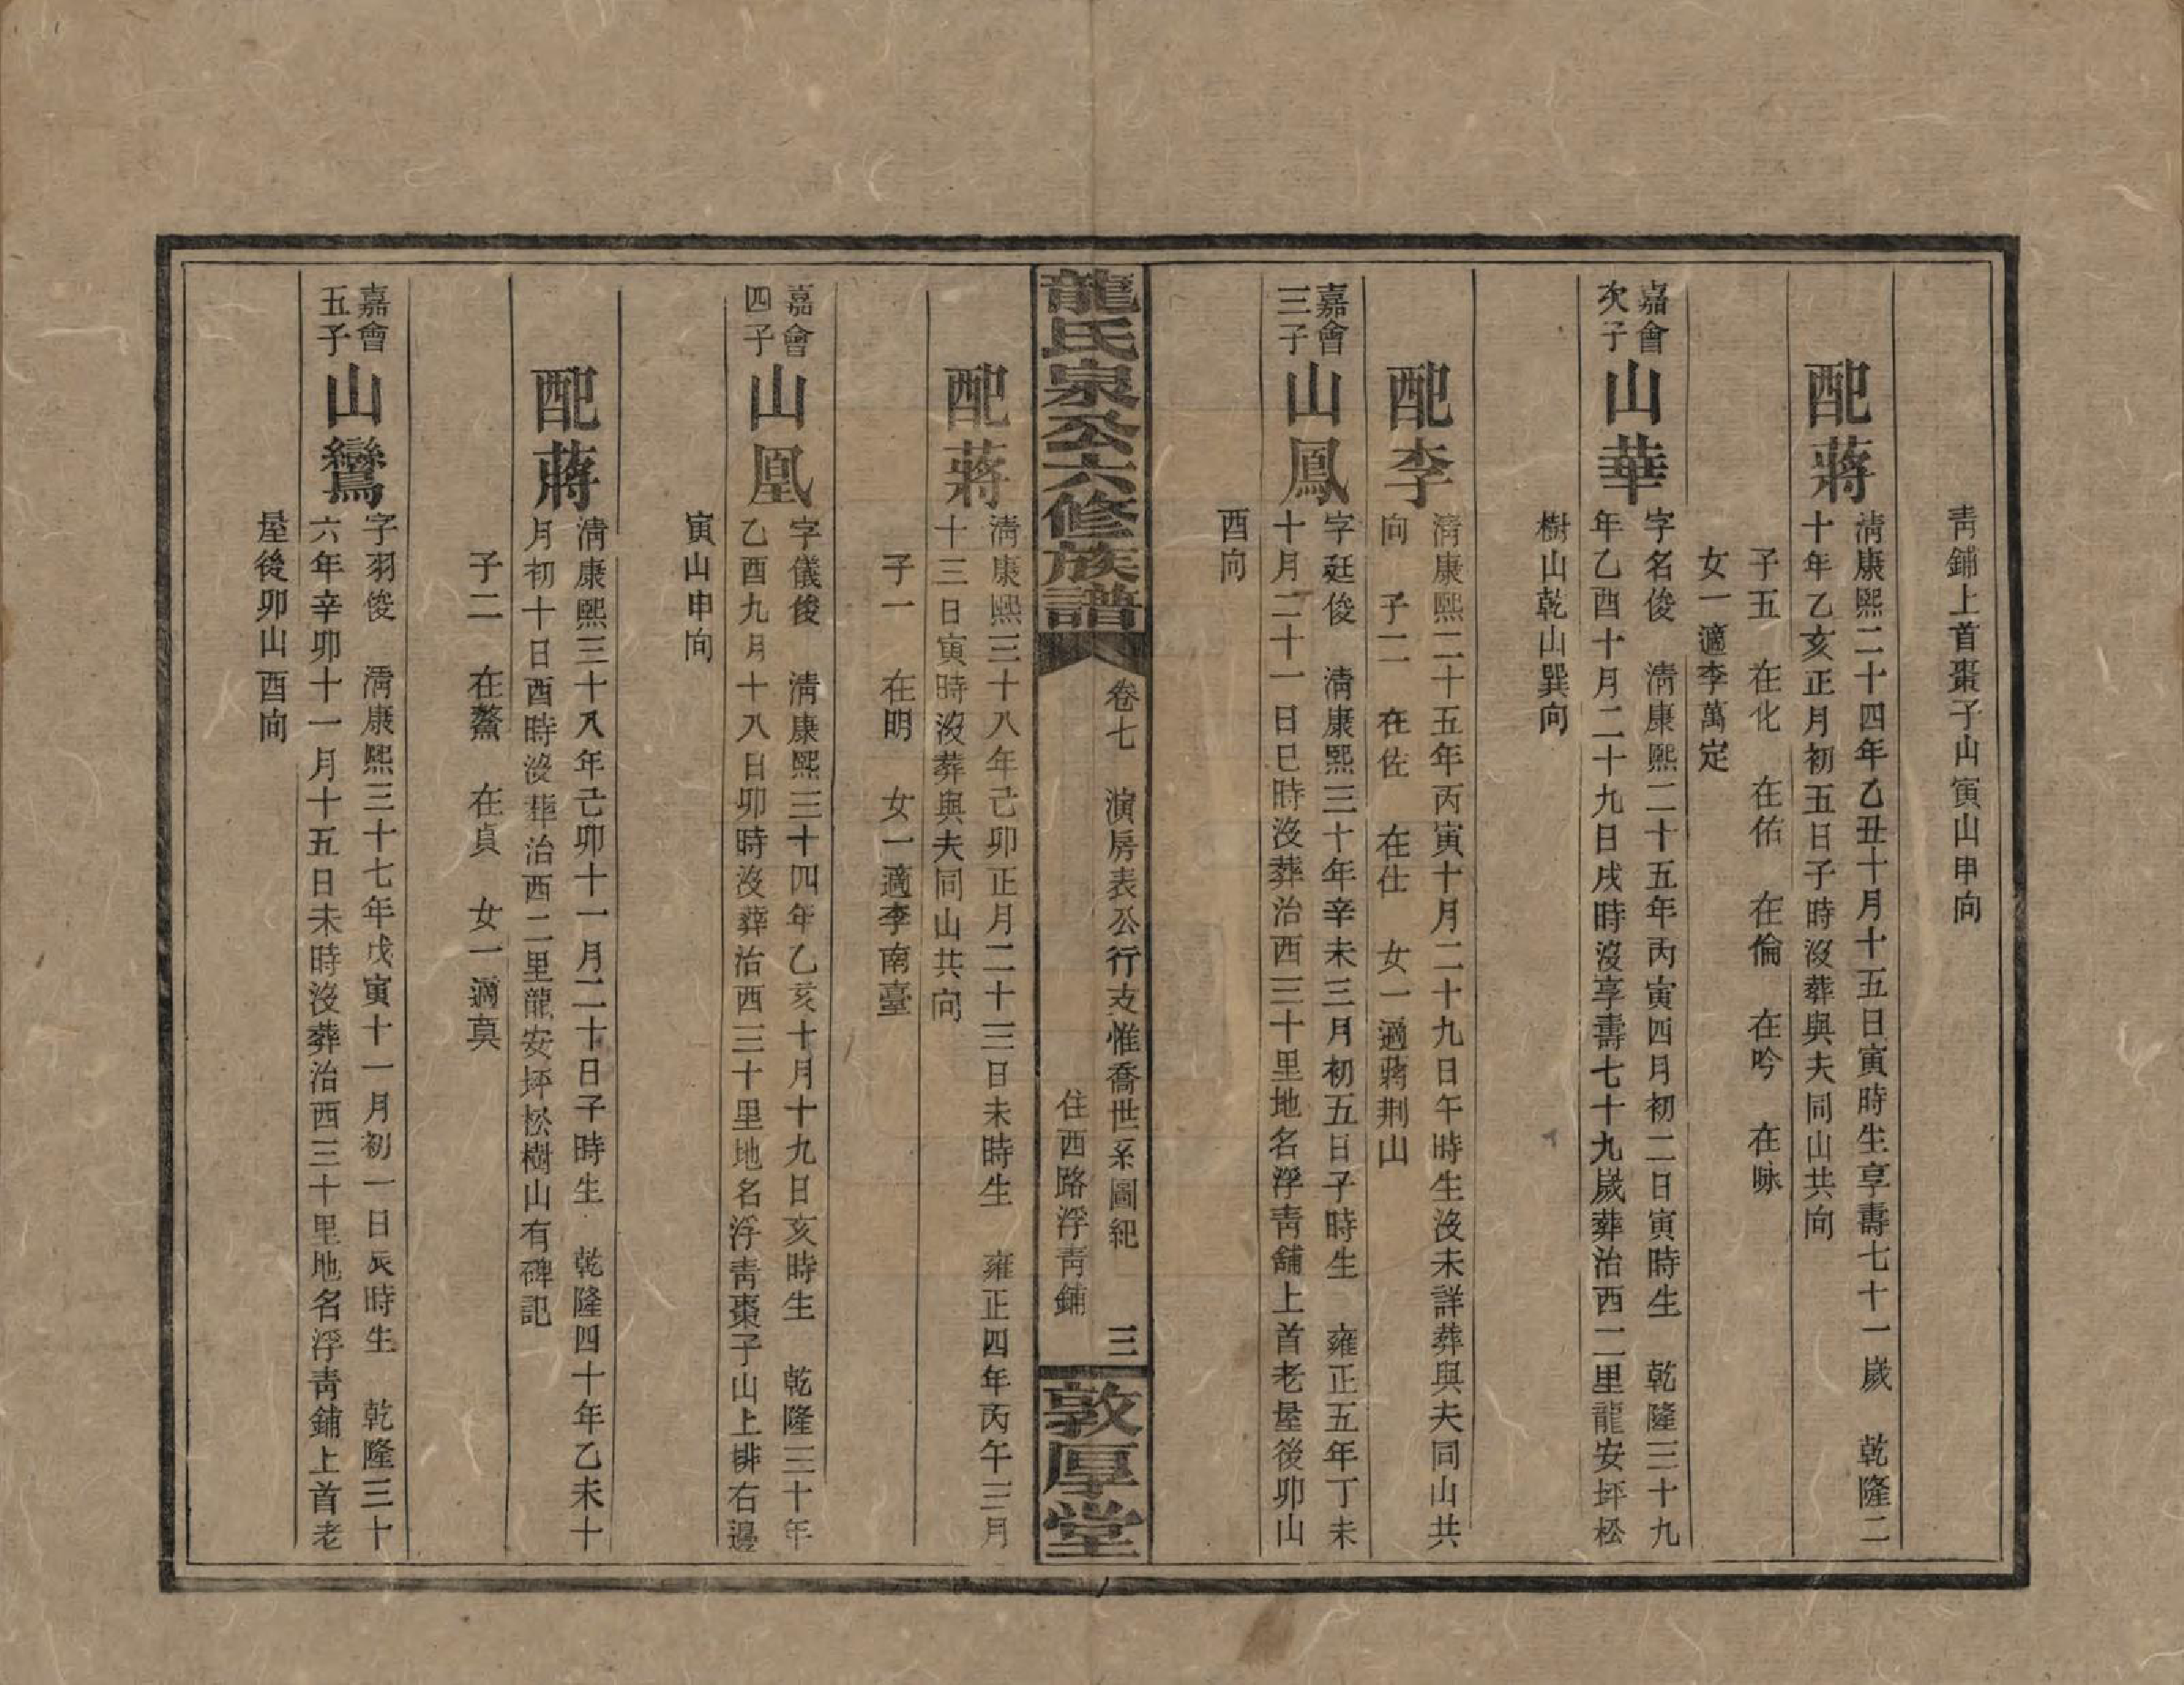 靑鋪上首棗子山寅山申向
配蔣
淸康熙二十四年乙丑十月十五日寅時生享壽七十一歲　乾隆二
十年乙亥正月初五日子時沒葬與夫同山共向
子五　在化　在佑　在倫　在吟　在咏
女一適李萬定
嘉會
次子
山華
字名俊　淸康熙二十五年丙寅四月初二日寅時生　乾隆三十九
年乙酉十月二十九日戌時沒享壽七十九歲葬治西二里龍安坪松
樹山乾山巽向
配李
淸康熙二十五年丙寅十月二十九日午時生沒未詳葬與夫同山共
向　子二　在佐　在仕　女一適蔣荆山
嘉會
三子
山鳳
字廷俊　淸康熙三十年辛未三月初五日子時生　雍正五年丁未
十月二十一日巳時沒葬治西三十里地名浮靑舖上首老屋後卯山
酉向
龍氏泉公六修族譜
卷七　演房表公行支惟喬世系圖紀　三
住西路浮靑鋪
敦厚堂
配蔣
淸康熙三十八年己卯正月二十三日未時生　雍正四年丙午三月
十三日寅時沒葬與夫同山共向
子一　在明　女一適李南臺
嘉會
四子
山凰
字儀俊　淸康熙三十四年乙亥十月十九日亥時生　乾隆三十年
乙酉九月十八日卯時沒葬治西三十里地名浮靑棗子山上排右邊
寅山申向
配蔣
淸康熙三十八年己卯十一月二十日子時生　乾隆四十年乙未十
月初十日酉時沒葬治西二里龍安坪松樹山有碑記
子二　在鰲　在貞　女一適莫
嘉會
五子
山鸞
字羽俊　淸康熙三十七年戊寅十一月初一日辰時生　乾隆三十
六年辛卯十一月十五日未時沒葬治西三十里地名浮靑鋪上首老
屋後卯山酉向